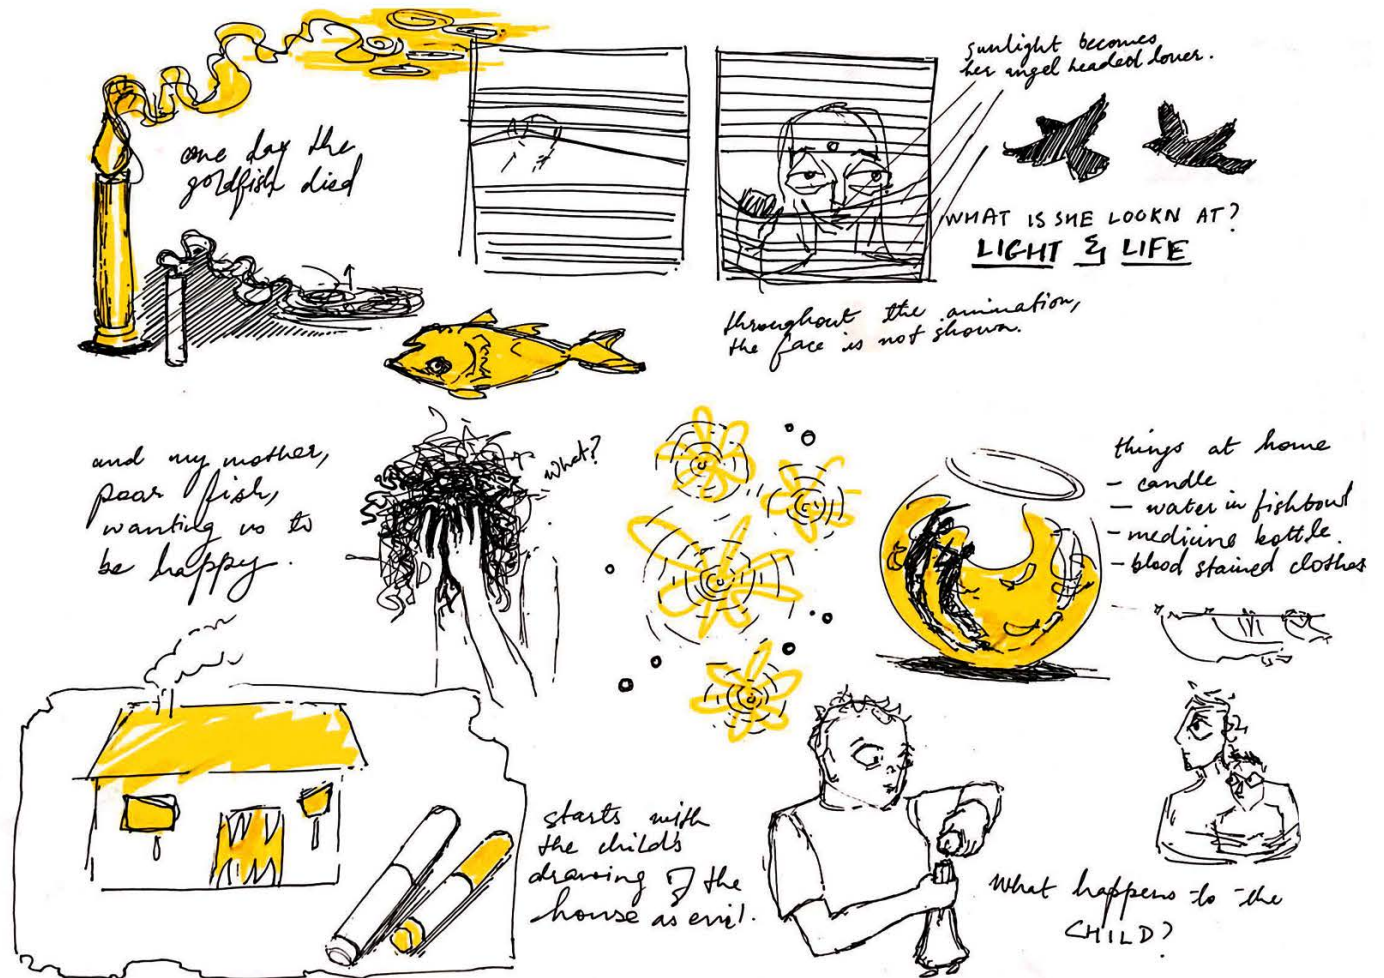 one day the
goldfish died
sunlight becomes
her angel headed lover.
WHAT IS SHE LOOKN AT?
LIGHT & LIFE
throughout the animation,
the face is not shown.
and my mother,
poor fish,
wanting us to
be happy.
what?
things at home
- candle
- water in fishbowl
- medicine bottle.
- blood stained clothes
starts with
the child's
drawing of the
house as evil.
What happens to the
CHILD?